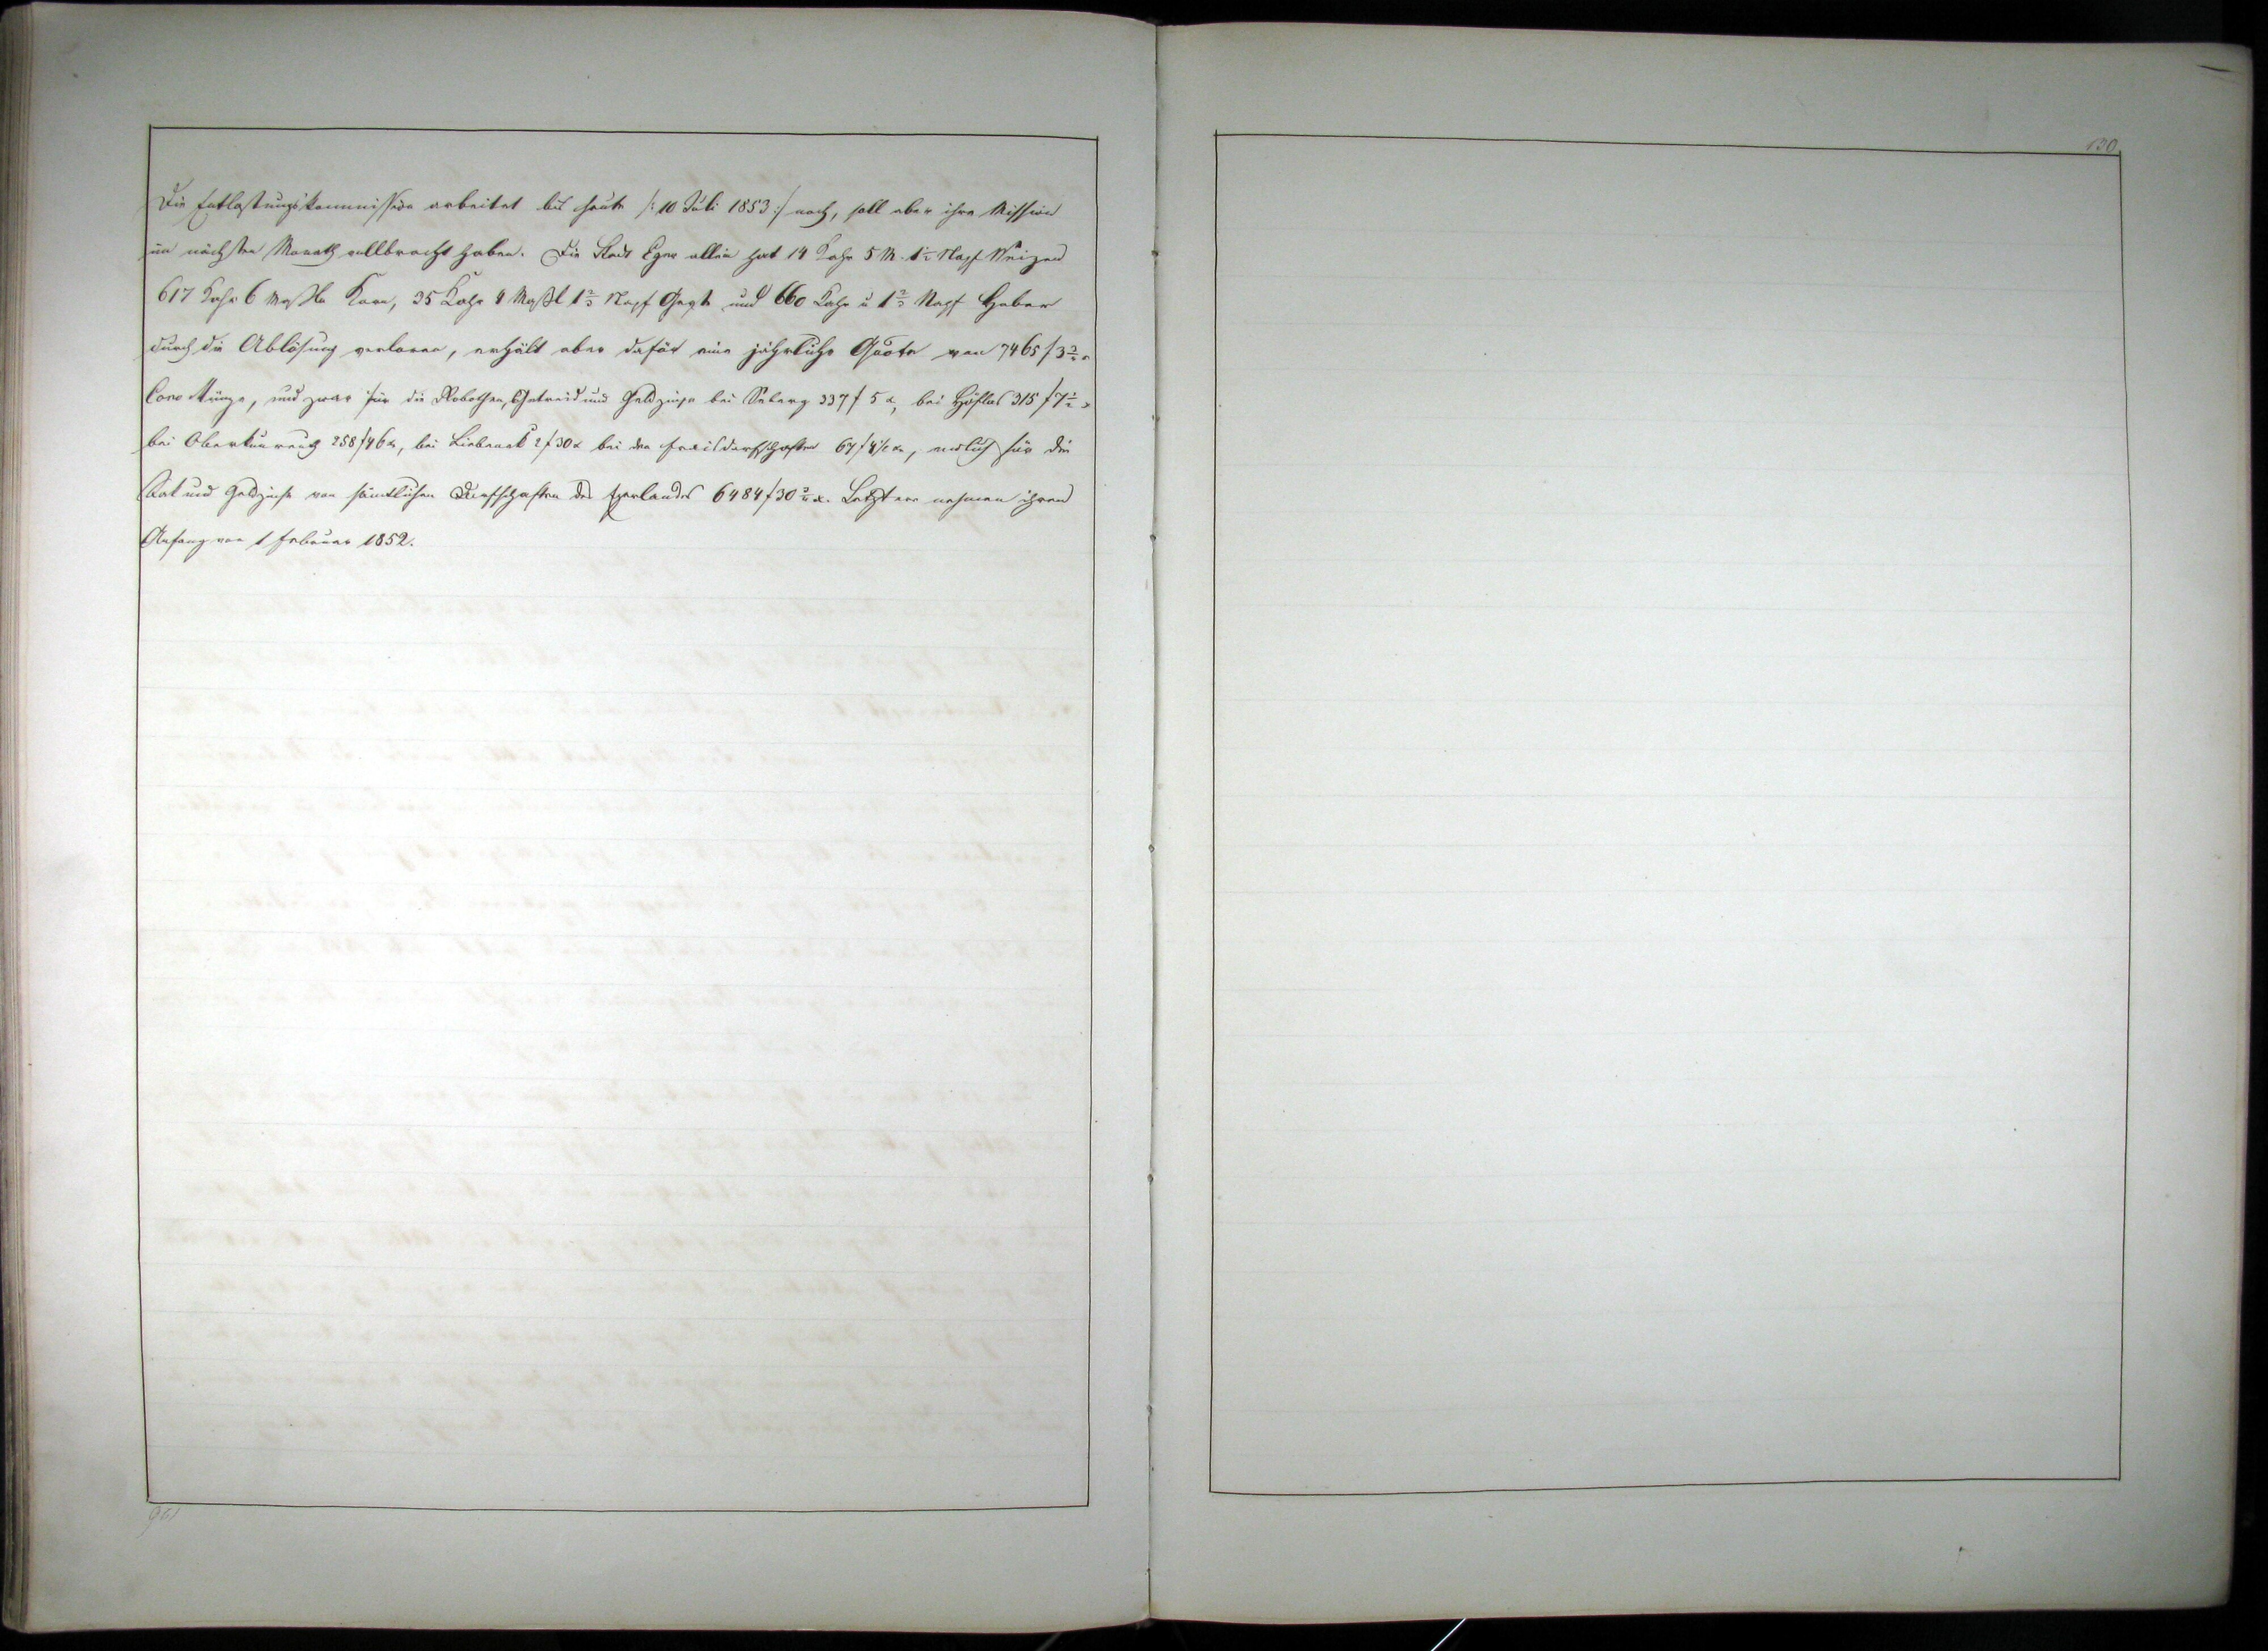 Die Entlastungskommission arbeitet bis heute /: 10 Juli 1853 :/ noch, soll aber ihre Mission
im nächsten Monath vollbracht haben. Die Stadt Eger allein hat 14 Kahr 5 M. 1½ Napf Weizen
617 Kahr 6 Maßln Korn, 35 Kahr 4 Maßl 1⅔ Napf Gerst und 660 Kahr u 1⅔ Napf Haber
durch die Ablösung verloren, erhält aber dafür eine jährliche Quote von 7465 f 3
Conv Münze, und zwar für die Robothen, Getreid und Geldzinse bei Seberg 337 f 5 x, bei Höflas 315 f 7½ x
bei Oberkunreuth 258 f 46 x, bei Liebeneck 2 f 30 x bei den 67 f, endlich für die
und Geldzinse von sämtlichen Dorfschaften des Egerlandes 6484 f 30 x. Letztere nehmen ihren
Anfang von 1 Februar 1852.
130.